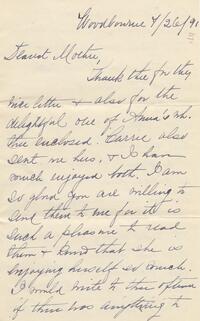 Woodbourne 4/26/91
Dearest Mother,
Thank thee for thy
nice letter & also for the
delightful one of Anna's wh.
thee enclosed. Carrie also
sent me hers, & I have
much enjoyed both. I am
so glad you are willing to
send them to me for it is
such a pleasure to read
them & know that she is
enjoying herself so much.
I would write to thee oftener
if there was anything to